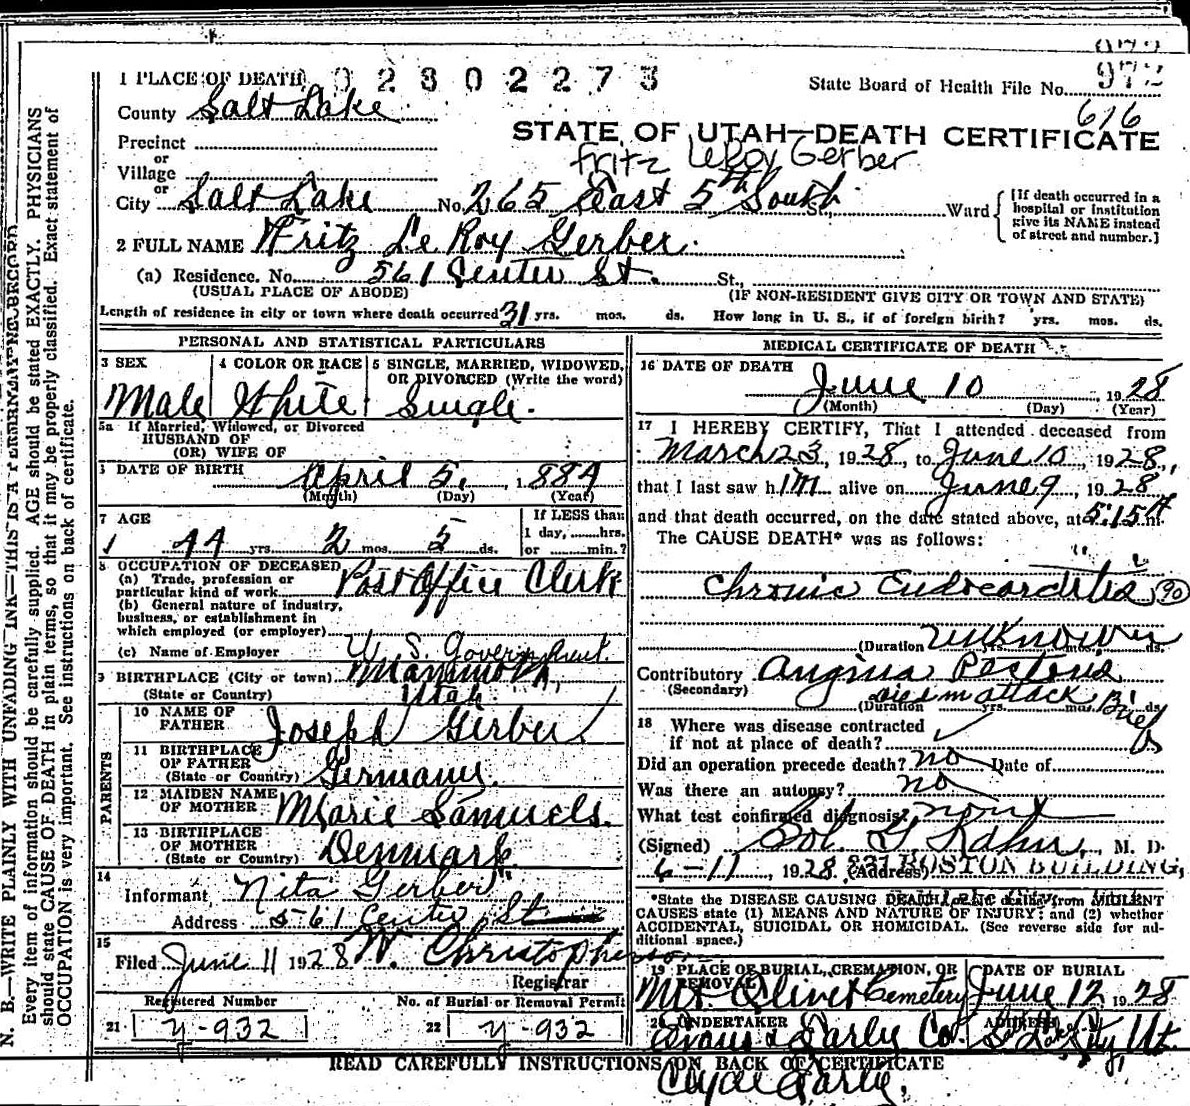 1 PLACE OF DEATH 02302273
State Board of Health File No. 972
County Salt Lake
616
STATE OF UTAH—DEATH CERTIFICATE
Precinct
or
Village
Fritz LeRoy Gerber
or
City Salt Lake No. 265 East 5th South St., Ward
[If death occurred in a hospital or institution give its NAME instead of street and number.]
2 FULL NAME Fritz Le Roy Gerber
(a) Residence. No. 561 Center St. St.,
(USUAL PLACE OF ABODE) (IF NON-RESIDENT GIVE CITY OR TOWN AND STATE)
Length of residence in city or town where death occurred 31 yrs. mos. ds. How long in U. S., if of foreign birth? yrs. mos. ds.
PERSONAL AND STATISTICAL PARTICULARS
3 SEX 4 COLOR OR RACE 5 SINGLE, MARRIED, WIDOWED, OR DIVORCED (Write the word)
Male White Single.
5a If Married, Widowed, or Divorced
HUSBAND OF
(OR) WIFE OF
DATE OF BIRTH April 5, 1884
(Month) (Day) (Year)
7 AGE
44 yrs. 2 mos. 5 ds.
If LESS than
1 day,......hrs.
or ......min.?
8 OCCUPATION OF DECEASED
(a) Trade, profession or
particular kind of work Post Office Clerk
(b) General nature of industry,
business, or establishment in
which employed (or employer)
(c) Name of Employer U. S. Government.
9 BIRTHPLACE (City or town)
(State or Country) Utah
PARENTS
10 NAME OF
FATHER Joseph Gerber
11 BIRTHPLACE
OF FATHER
(State or Country) Germany.
12 MAIDEN NAME
OF MOTHER Marie Samuels.
13 BIRTHPLACE
OF MOTHER
(State or Country) Denmark.
14
Informant Nita Gerber
Address 561 Center St
15
Filed June 11 1928 W. Christopherson
Registrar
Registered Number No. of Burial or Removal Permit
21 y-932 22 y-932
MEDICAL CERTIFICATE OF DEATH
16 DATE OF DEATH
June 10, 1928
(Month) (Day) (Year)
17 I HEREBY CERTIFY, That I attended deceased from
March 23, 1928, to June 10, 1928,
that I last saw him alive on June 9, 1928
and that death occurred, on the date stated above, at 5:15 A m.
The CAUSE DEATH* was as follows:
Chronic Endocarditis 90
(Duration unknown yrs. mos. ds.
Contributory Angina Pectoris
(Secondary)
(Duration yrs. mos. ds. Brief
18 Where was disease contracted
if not at place of death?
Did an operation precede death? no Date of
Was there an autopsy? no
What test confirmed diagnosis? none
(Signed) Sol. G. Kahn, M. D.
6-11, 1928 (Address) BOSTON BUILDING,
*State the DISEASE CAUSING DEATH, or in deaths from VIOLENT
CAUSES state (1) MEANS AND NATURE OF INJURY; and (2) whether
ACCIDENTAL, SUICIDAL OR HOMICIDAL. (See reverse side for additional space.)
19 PLACE OF BURIAL, CREMATION, OR REMOVAL DATE OF BURIAL
Mt. Olivet Cemetery June 12 1928
20 UNDERTAKER ADDRESS
Evans & Early Co. S. L. City, Ut.
READ CAREFULLY INSTRUCTIONS ON BACK OF CERTIFICATE
Clyde Early.
N. B.—WRITE PLAINLY WITH UNFADING INK—THIS IS A PERMANENT RECORD
Every item of information should be carefully supplied. AGE should be stated EXACTLY. PHYSICIANS
should state CAUSE OF DEATH in plain terms, so that it may be properly classified. Exact statement of
OCCUPATION is very important. See instructions on back of certificate.